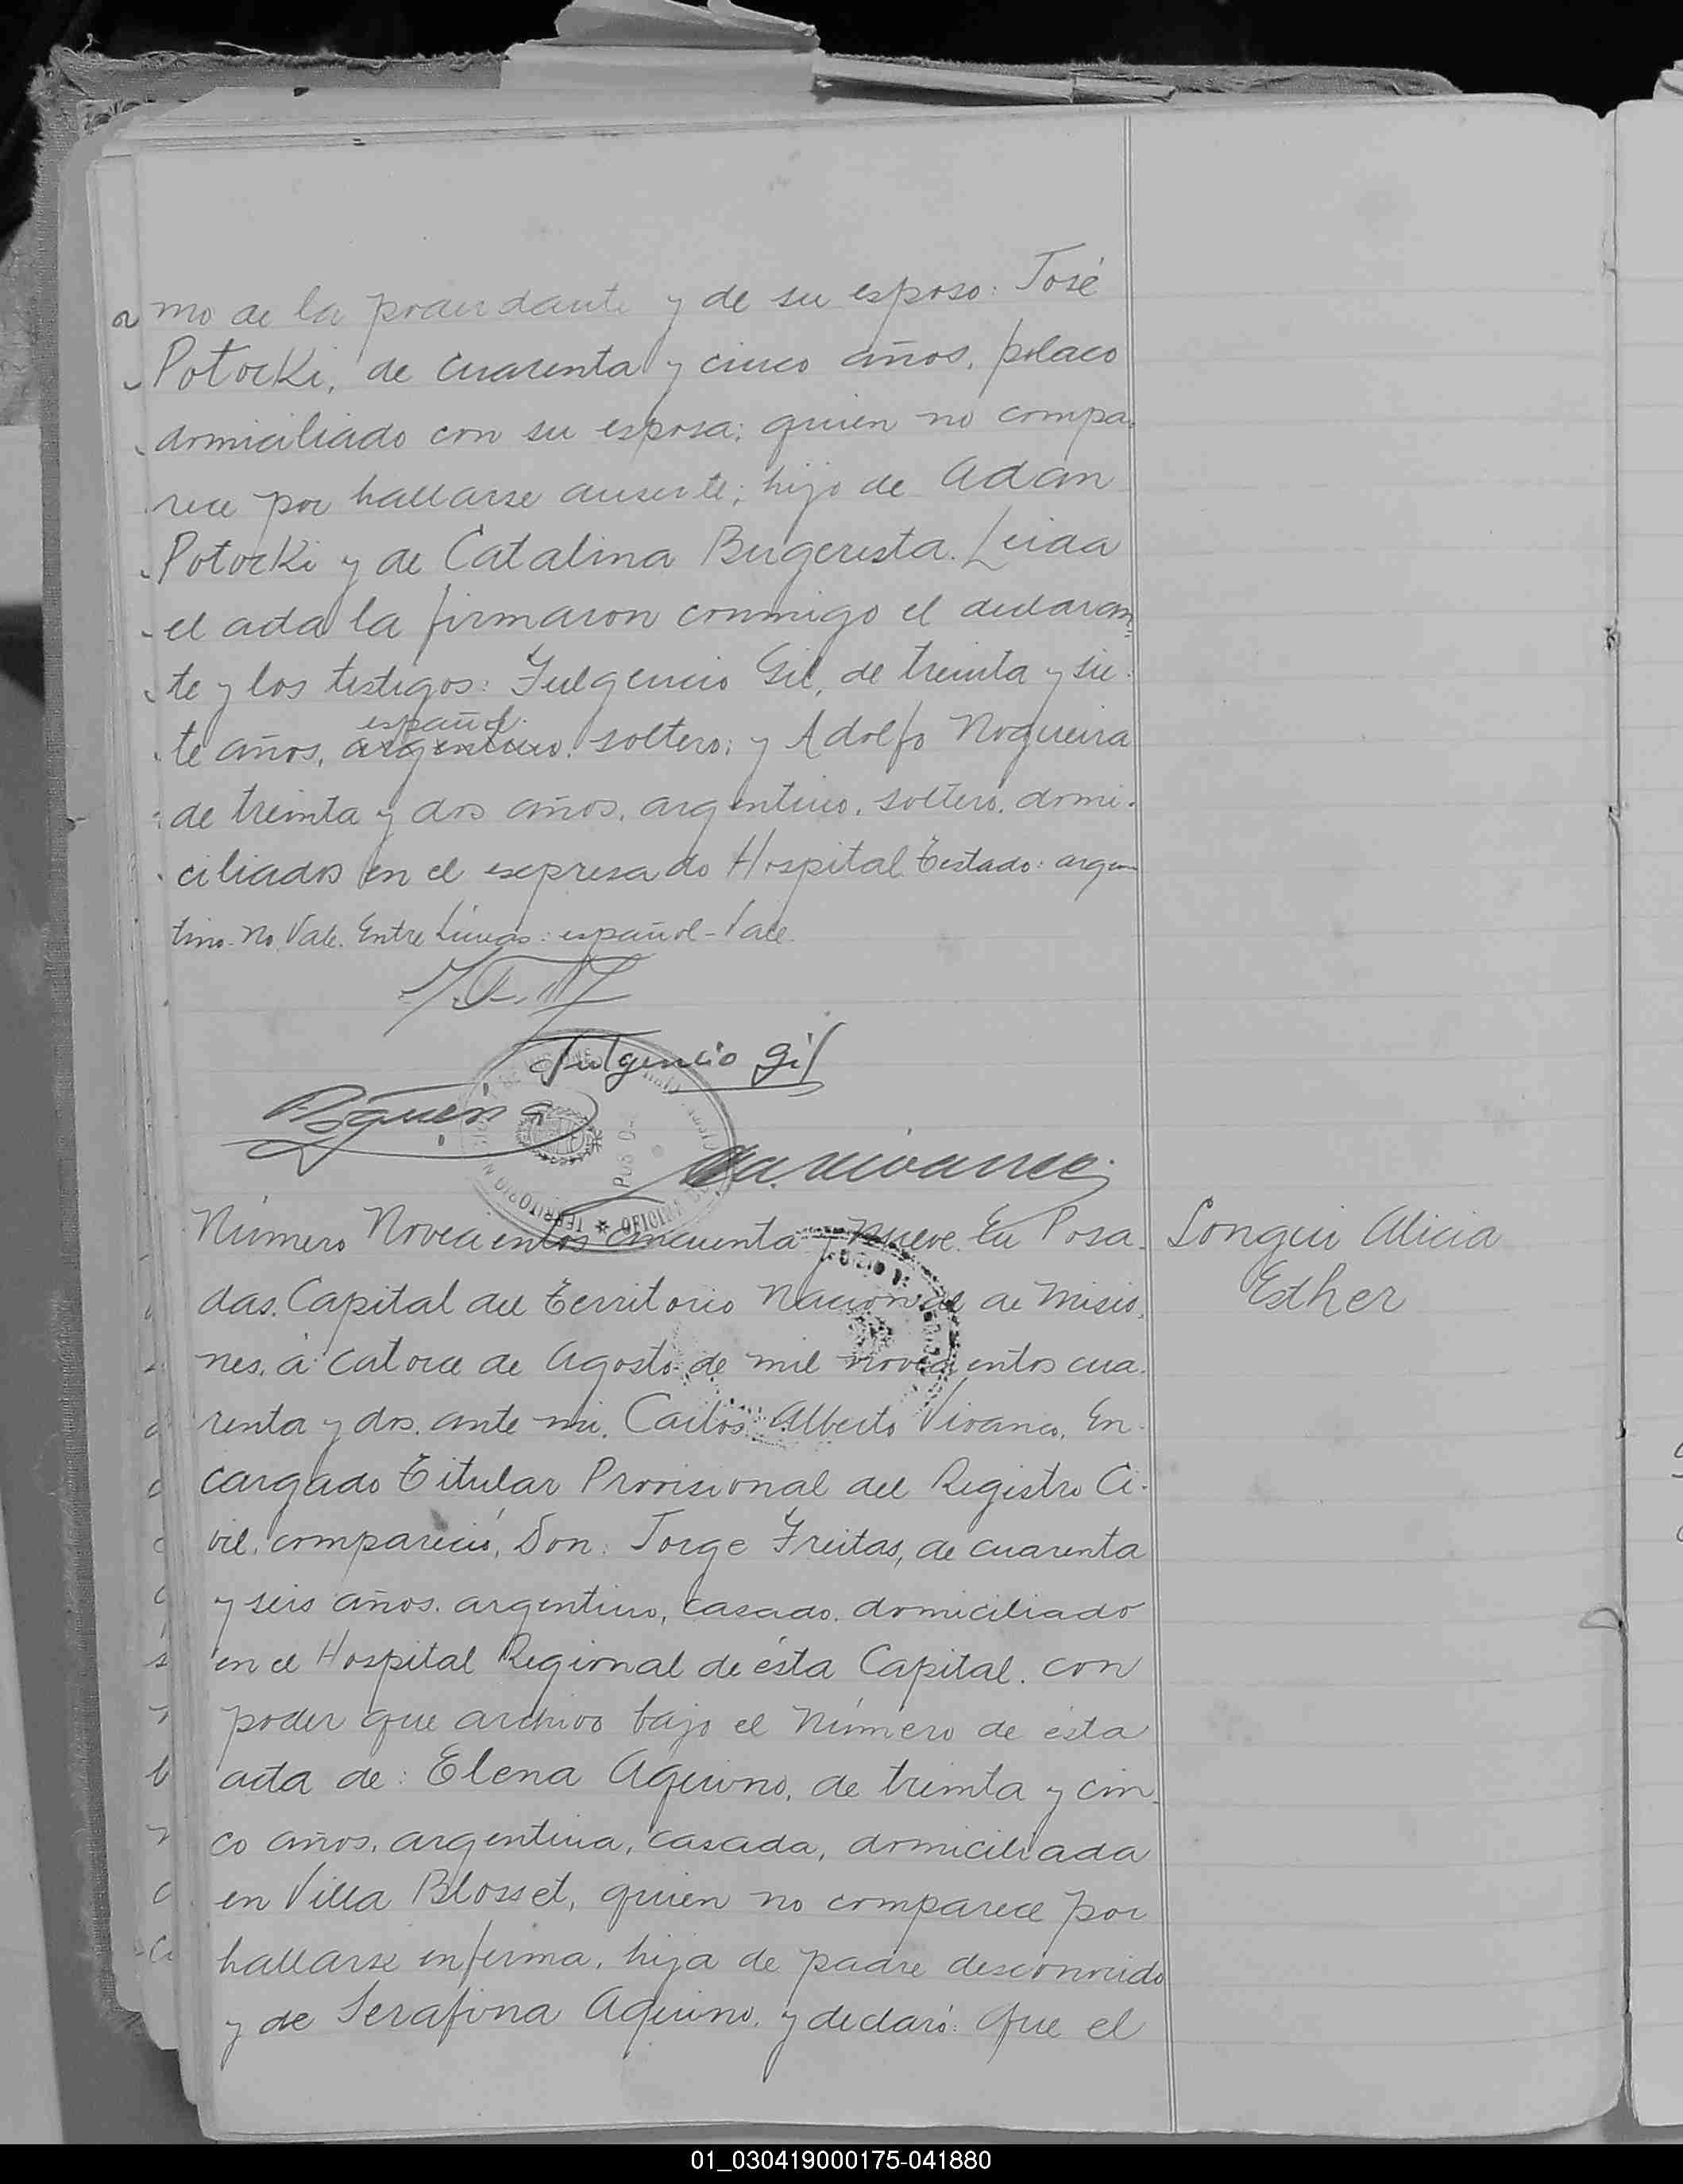 mo de la poderdante y de su esposo: José
Potocki, de cuarenta y cinco años, polaco
domiciliado con su esposa; quien no compa-
rece por hallarse ausente; hijo de Adan
Potocki y de Catalina Leida
el acta la firmaron conmigo el declaran=
te y los testigos: Fulgencio Gil, de treinta y sie-
español.
te años, argentino. soltero; y Adolfo Nogueira
de treinta y dos años, argentino, soltero, domi-
ciliados en el expresado Hospital Testado: argen
tino-No Vale. Entre Líneas: español-Vale.
Fulgencio Gil
Número Novecientos cincuenta y nueve. En Posa-
das. Capital del Territorio Nacional de Misio-
nes, á catorce de Agosto de mil novecientos cua-
renta y dos, ante mi, Carlos Alberto Vivanco, En-
cargado Titular Provisional del Registro Ci-
vil, compareció, Don: Jorge Freitas, de cuarenta
y seis años, argentino, casado, domiciliado
en el Hospital Regional de ésta Capital, con
poder que archivo bajo el número de ésta
acta de: Elena Aquino, de treinta y cin-
co años, argentina, casada, domiciliada
en Villa Blosset, quien no comparece por
hallarse enferma, hija de padre desconocido
y de Serafina Aquino, y declaró: Que el
Longui Alicia
Esther
01_030419000175-041880